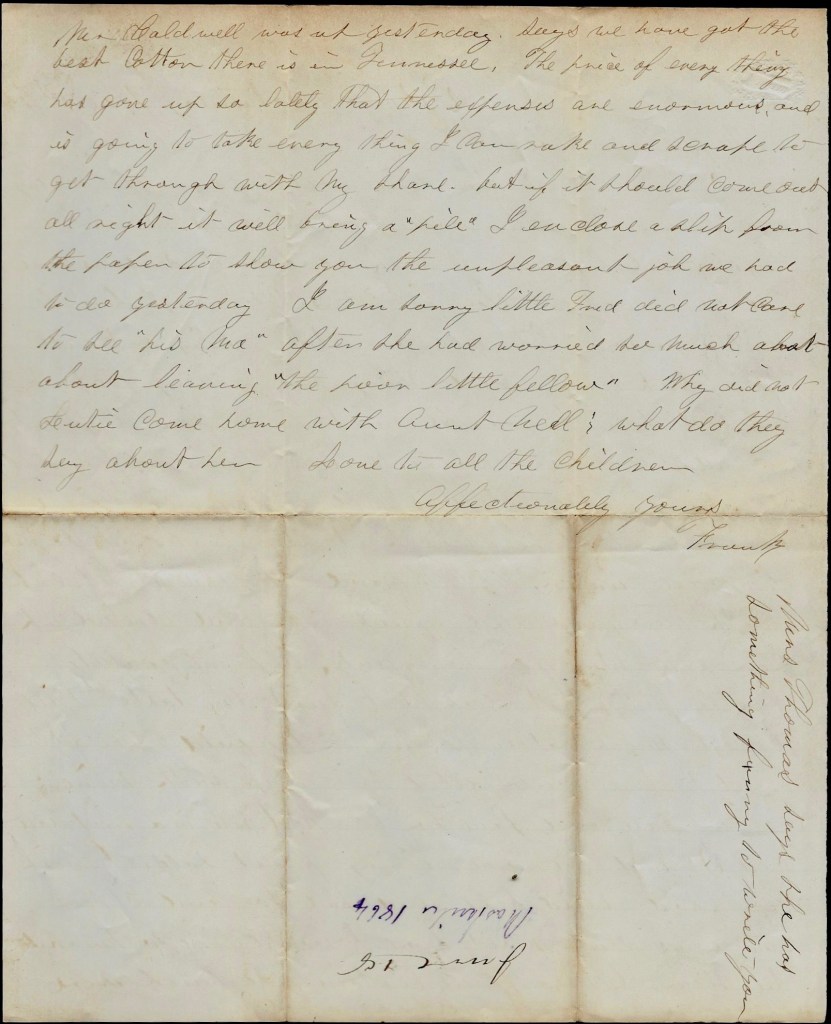 Mr. Caldwell was up yesterday. Says we have got the
best Cotton there is in Tennessee. The price of every thing
has gone up so lately that the expenses are enormous, and
is going to take every thing I can rake and scrape to
get through with my share. but if it should come out
all right it will bring a "pile" I enclose a slip from
the paper to show you the unpleasant job we had
to do yesterday I am sorry little Fred did not care
to see "his Ma" after she had worried so much about
about leaving "the poor little fellow" Why did not
Lutie come home with Aunt Nell & what do they
say about her Love to all the children
Affectionately yours
Frank
Mrs Thomas says she has
something funny to write you
Nashville 1864
June 18